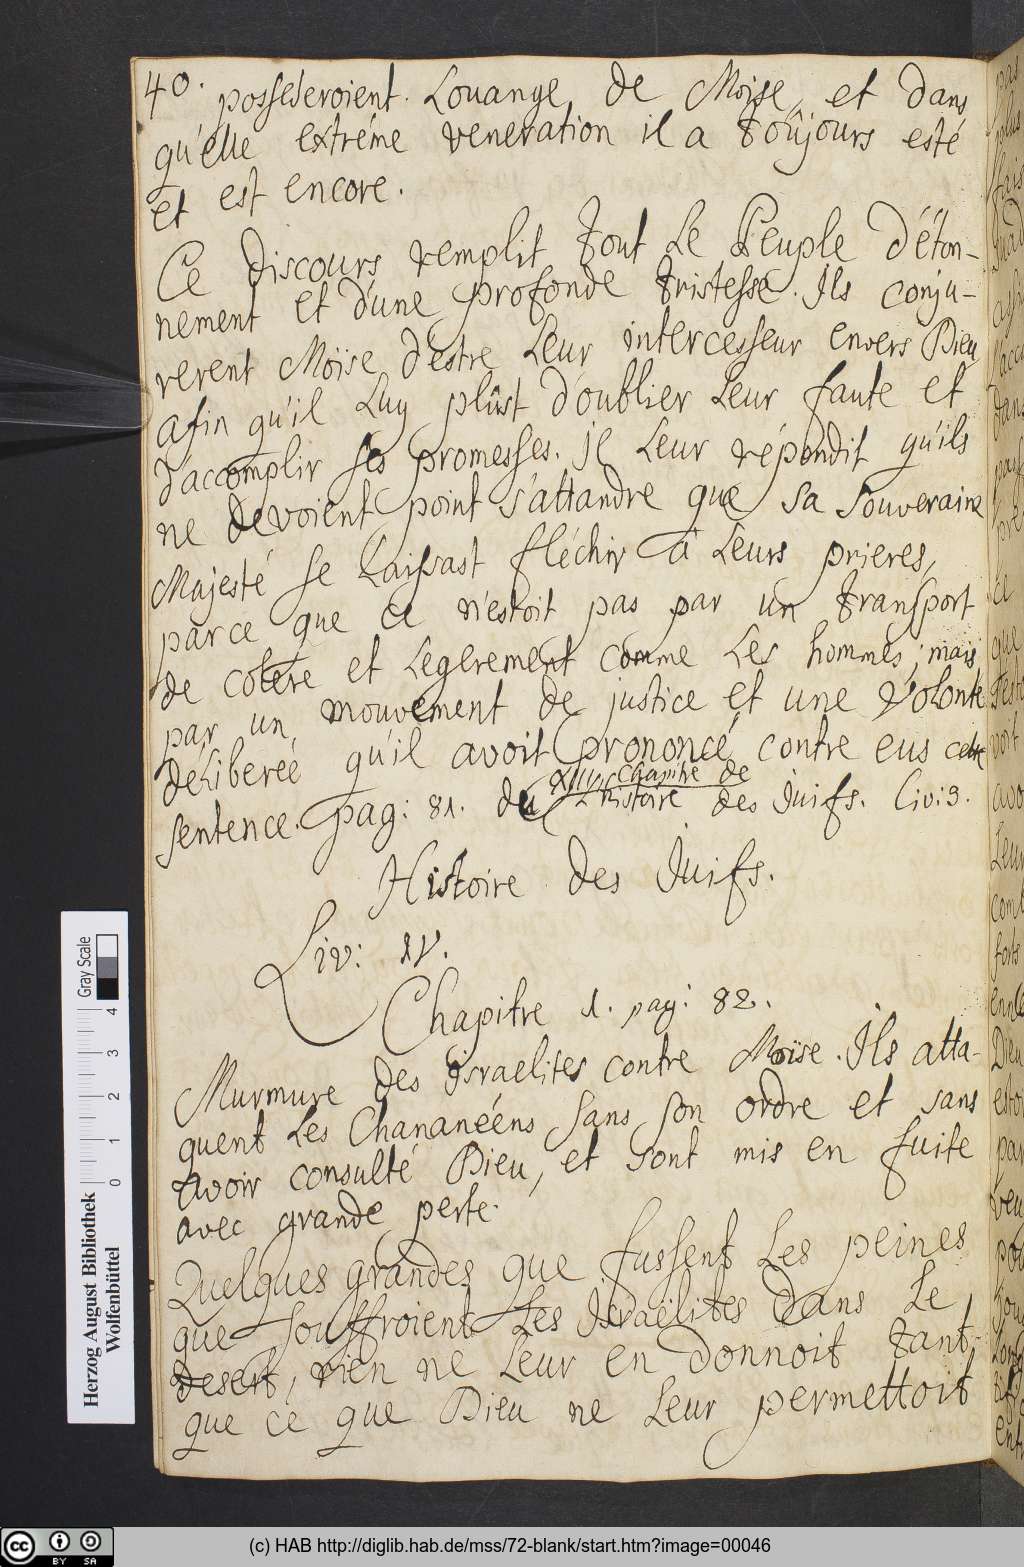 40. possederoient. Louange de Moise, et dans
qu'elle extréme veneration il a toûjours esté
et est encore.
Ce discours remplit tout le Peuple d'éton-
nement et d'une profonde tristesse. Ils conju-
rerent Moïse d'estre leur intercesseur envers Dieu
afin qu'il luy plûst d'oublier leur faute et
d'accomplir ses promesses. Il leur répondit qu'ils
ne devoient point s'attandre que sa souveraine
Majesté se laissast fléchir à leurs prieres,
parce que ce n'estoit pas par un transport
de colere et legerement comme les hommes; mais
par un mouvement de justice et une volonté
deliberée qu'il avoit prononcé contre eus cette
sentence. pag: 81. du XIII. Chapitre de
l'histoire des Juifs. Liv: 3.
Histoire des Juifs.
Liv: IV.
Chapitre 1. pag: 82.
Murmure des Israelites contre Moïse. Ils atta-
quent les Chananéens sans son ordre et sans
avoir consulté Dieu, et sont mis en fuite
avec grande perte.
Quelques grandes que fussent les peines
que souffroient les Israëlites dans le
desert, rien ne leur en donnoit tant
que ce que Dieu ne leur permettoit
Gray Scale
0 1 2 3 4
Herzog August Bibliothek
Wolfenbüttel
cc BY SA
(c) HAB http://diglib.hab.de/mss/72-blank/start.htm?image=00046